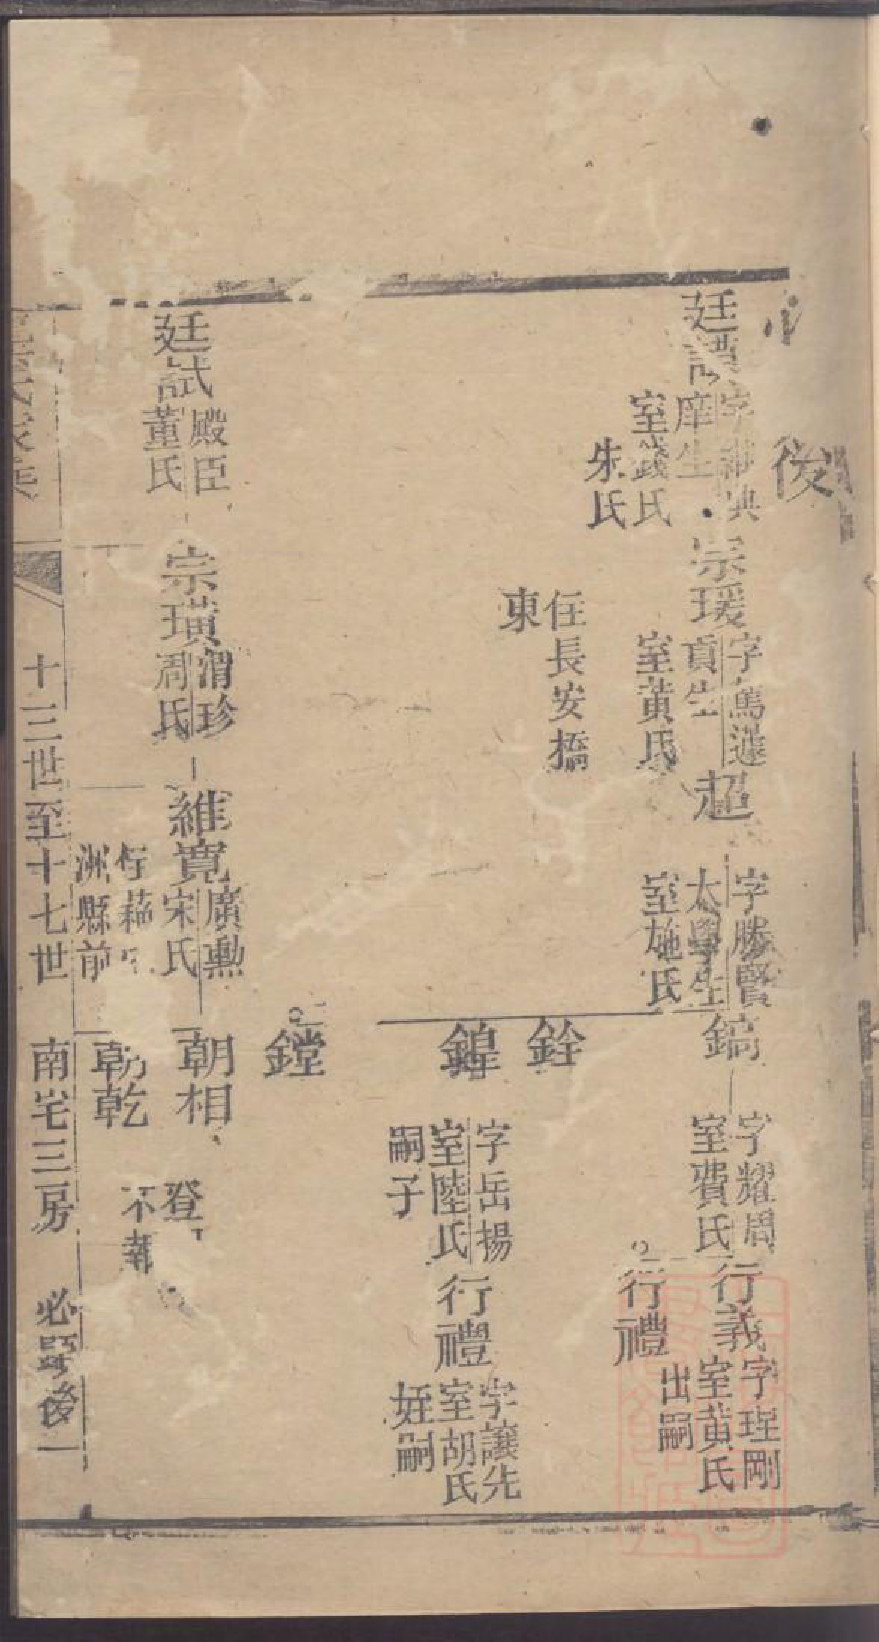 後
廷謨
字維典
庠生
室錢氏
朱氏
宗瑗
字篤選
貢生
室黃氏
住長安橋
東
超
字勝賢
太學生
室施氏
鎬
字耀周
室費氏
行義
字珵剛
室黃氏
行禮
出嗣
銓
鍠
字岳揚
室陸氏
嗣子
行禮
字讓先
室胡氏
姪嗣
鏜
廷試
殿臣
董氏
宗璜
渭珍
周氏
維寬
廣勳
宋氏
洲縣前
朝相
登
不
朝乾
十三世至十七世
南宅三房
後一